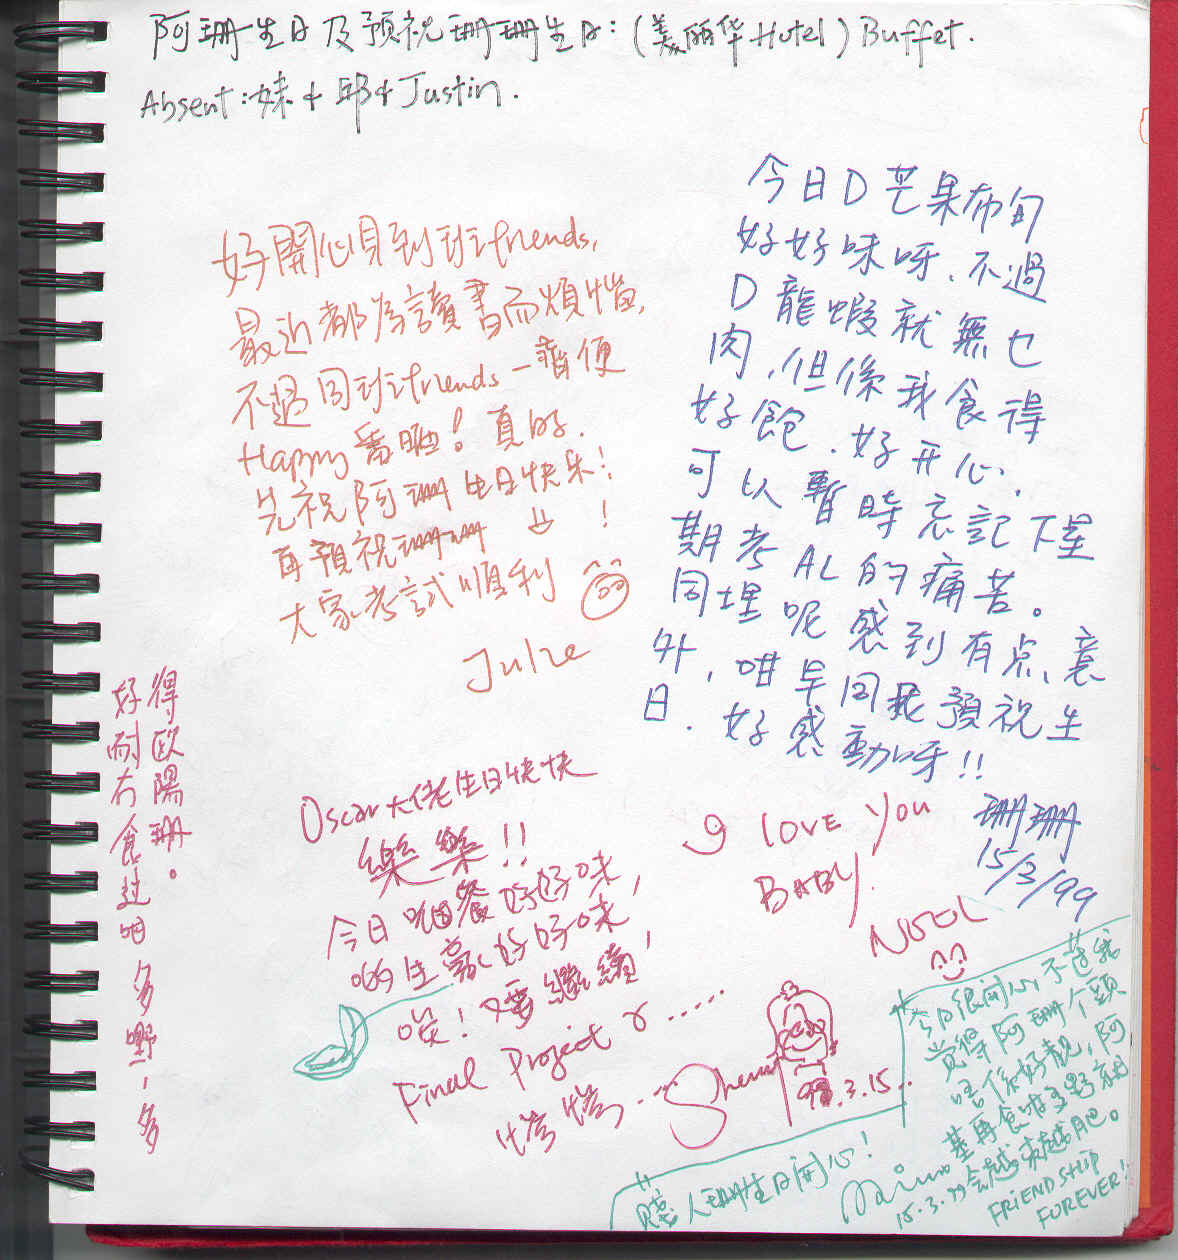 阿珊生日及預祝珊珊生日:(美丽华Hotel) Buffet.
Absent:妹+邱+Justin.
好開心見到班friends,
最近都為讀書而煩惱,
不過同班friends一齊便
Happy番晒!真的.
先祝阿珊生日快乐!
再預祝珊珊 !
大家考試順利
Julie
今日D芒果布甸
好好味呀、不過
D龍蝦就無乜
肉,但係我食得
好飽、好开心.
可以暫時忘記下星
期考AL的痛苦。
同埋呢感到有点意
外,咁早同我預祝生
日.好感動呀!!
珊珊
15/3/99
得欧陽珊。
好耐冇食过咁多嘢,多
Oscar大佬生日快快
樂樂!!
今日餐好好味,
生蠔好好味,
唉!又要繼續
Final Project r......
98.3.15..
I love you
BABY.
NOEL
今日很開心,不過我
覚得阿珊个頭
唔係好靚,阿
基再食咁多野就
会越來越肥。
15.3.99
FRIENDSHIP
FOREVER!
賤人珊生日開心!